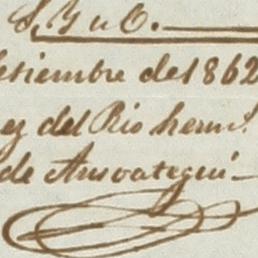 S. G. u O.
etiembre de 1862
ez del Rio herm.
de Ansoategui